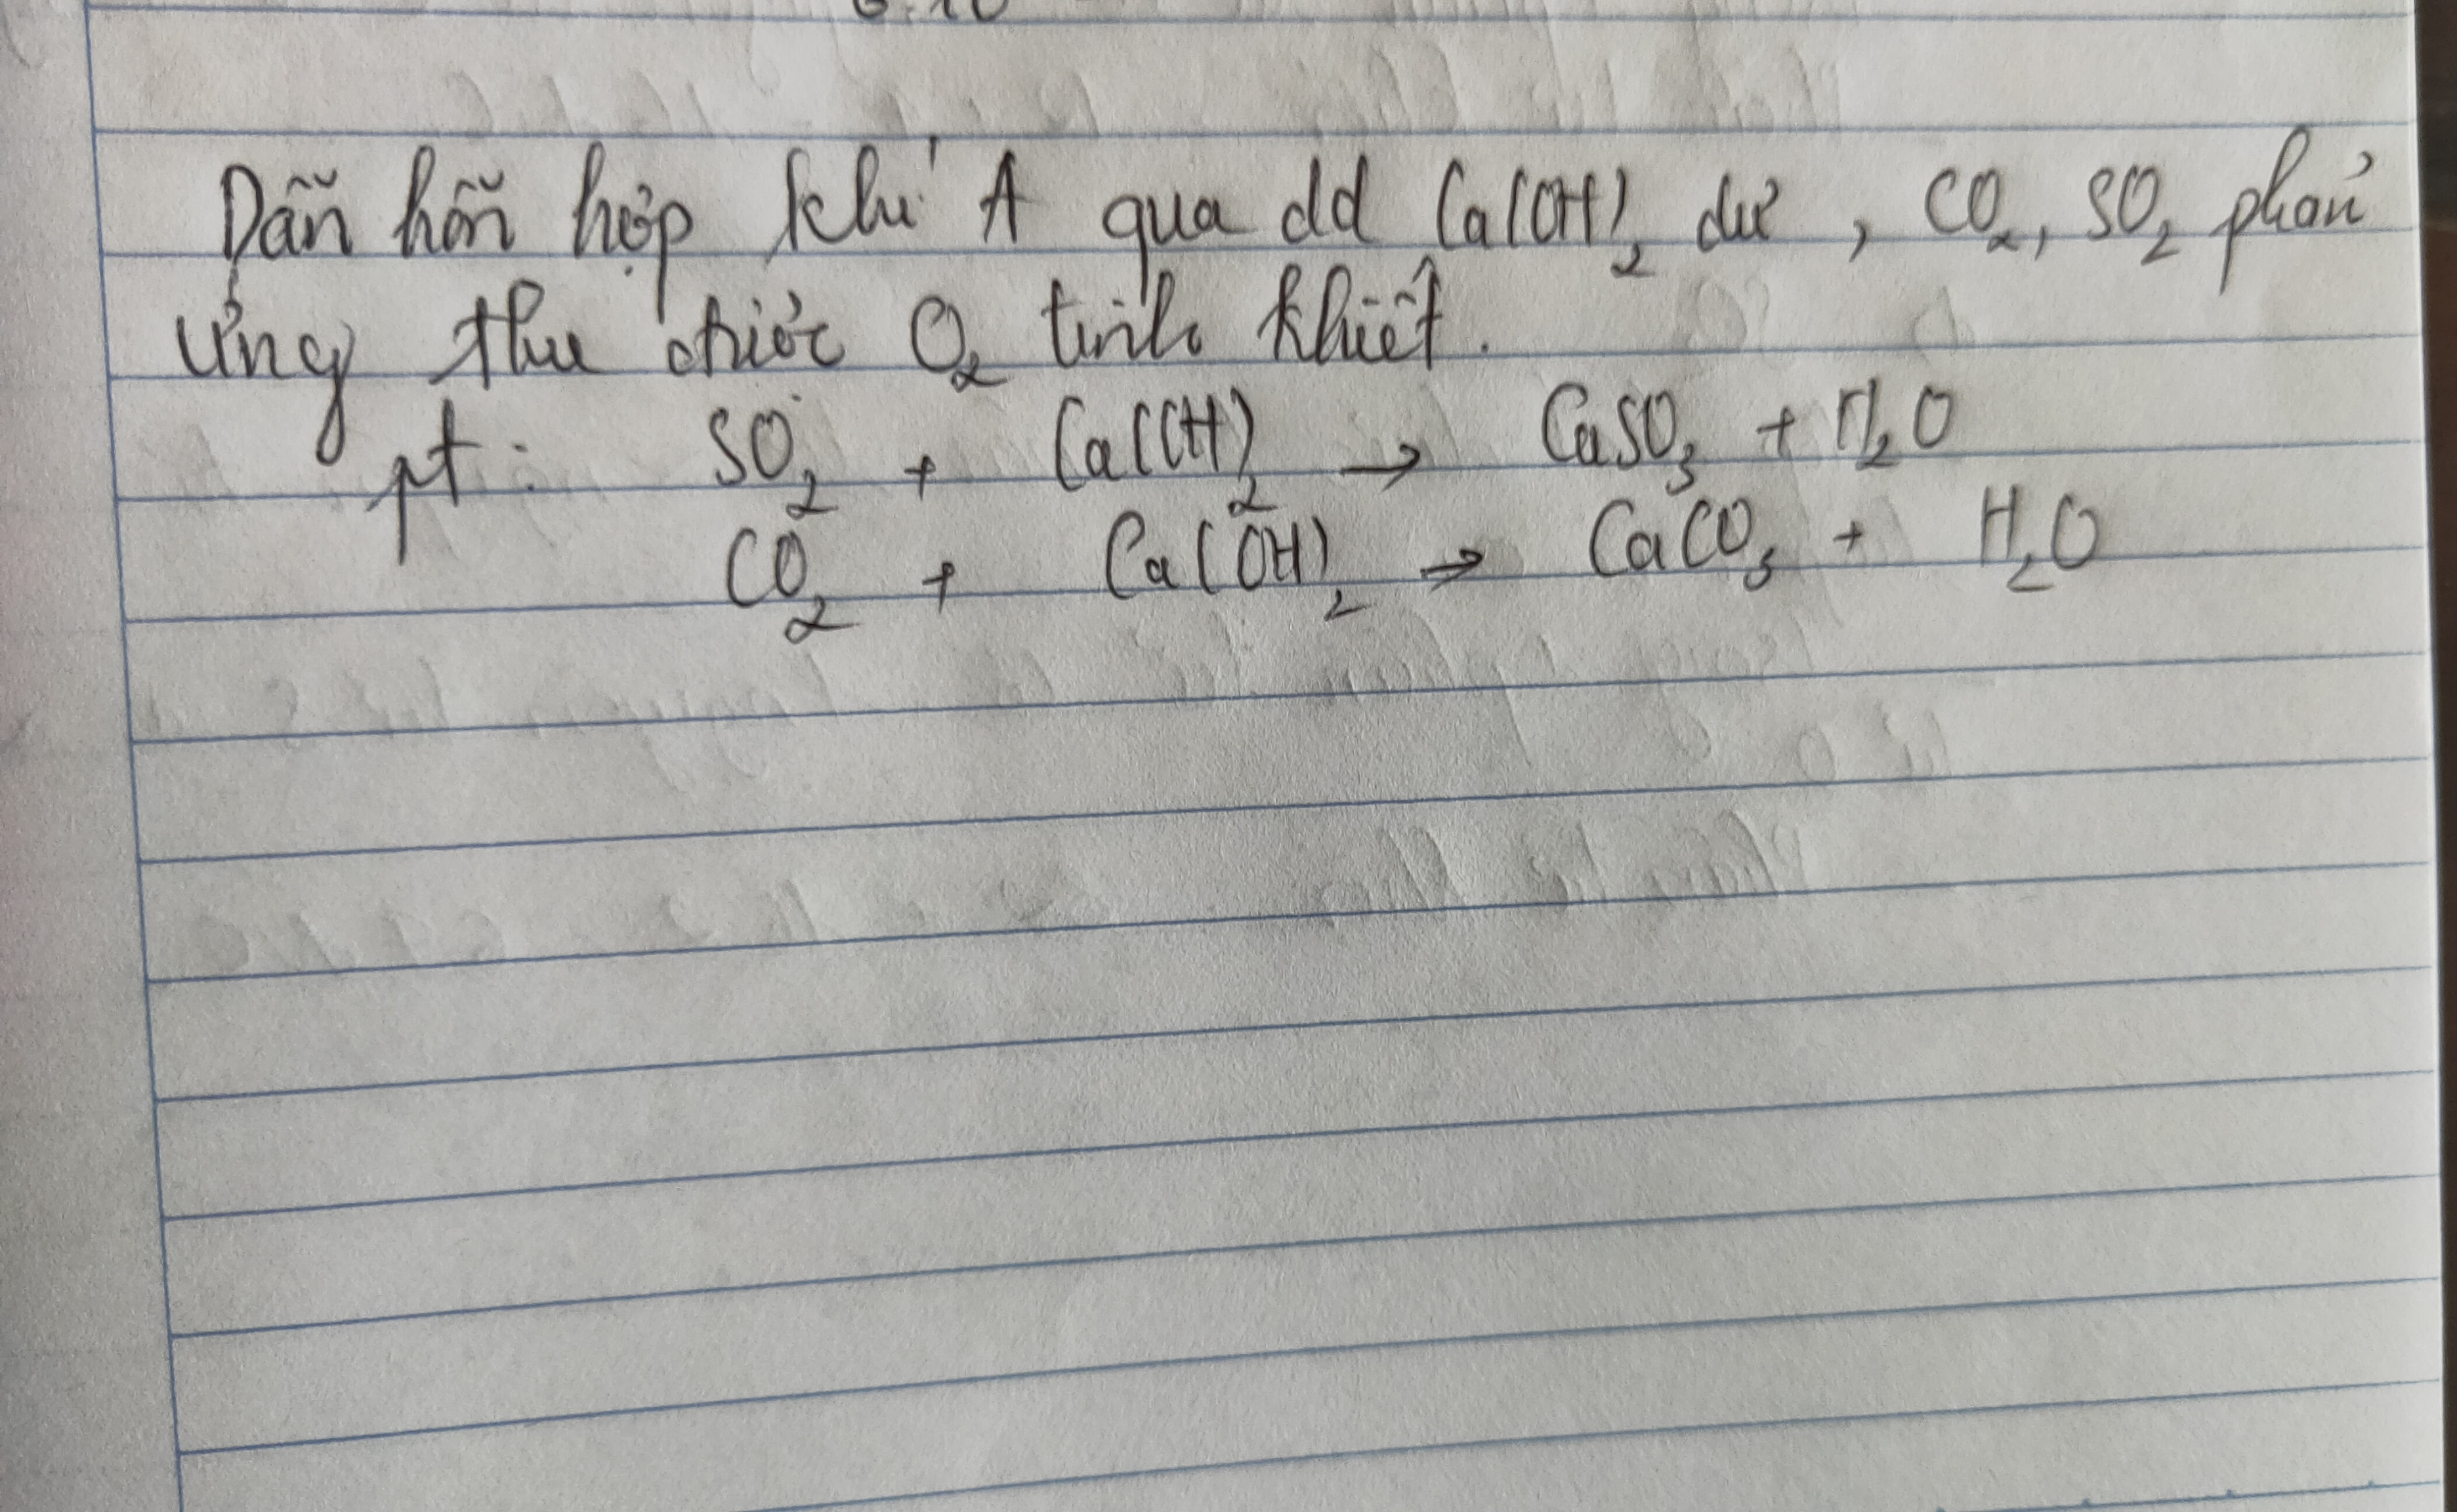 Dẫn hỗn hợp khí A qua dd Ca(OH)₂ dư, CO₂, SO₂ phản
ứng thu được O₂ tinh khiết.
pt: SO₂ + Ca(OH)₂ → CaSO₃ + H₂O
CO₂ + Ca(OH)₂ → CaCO₃ + H₂O